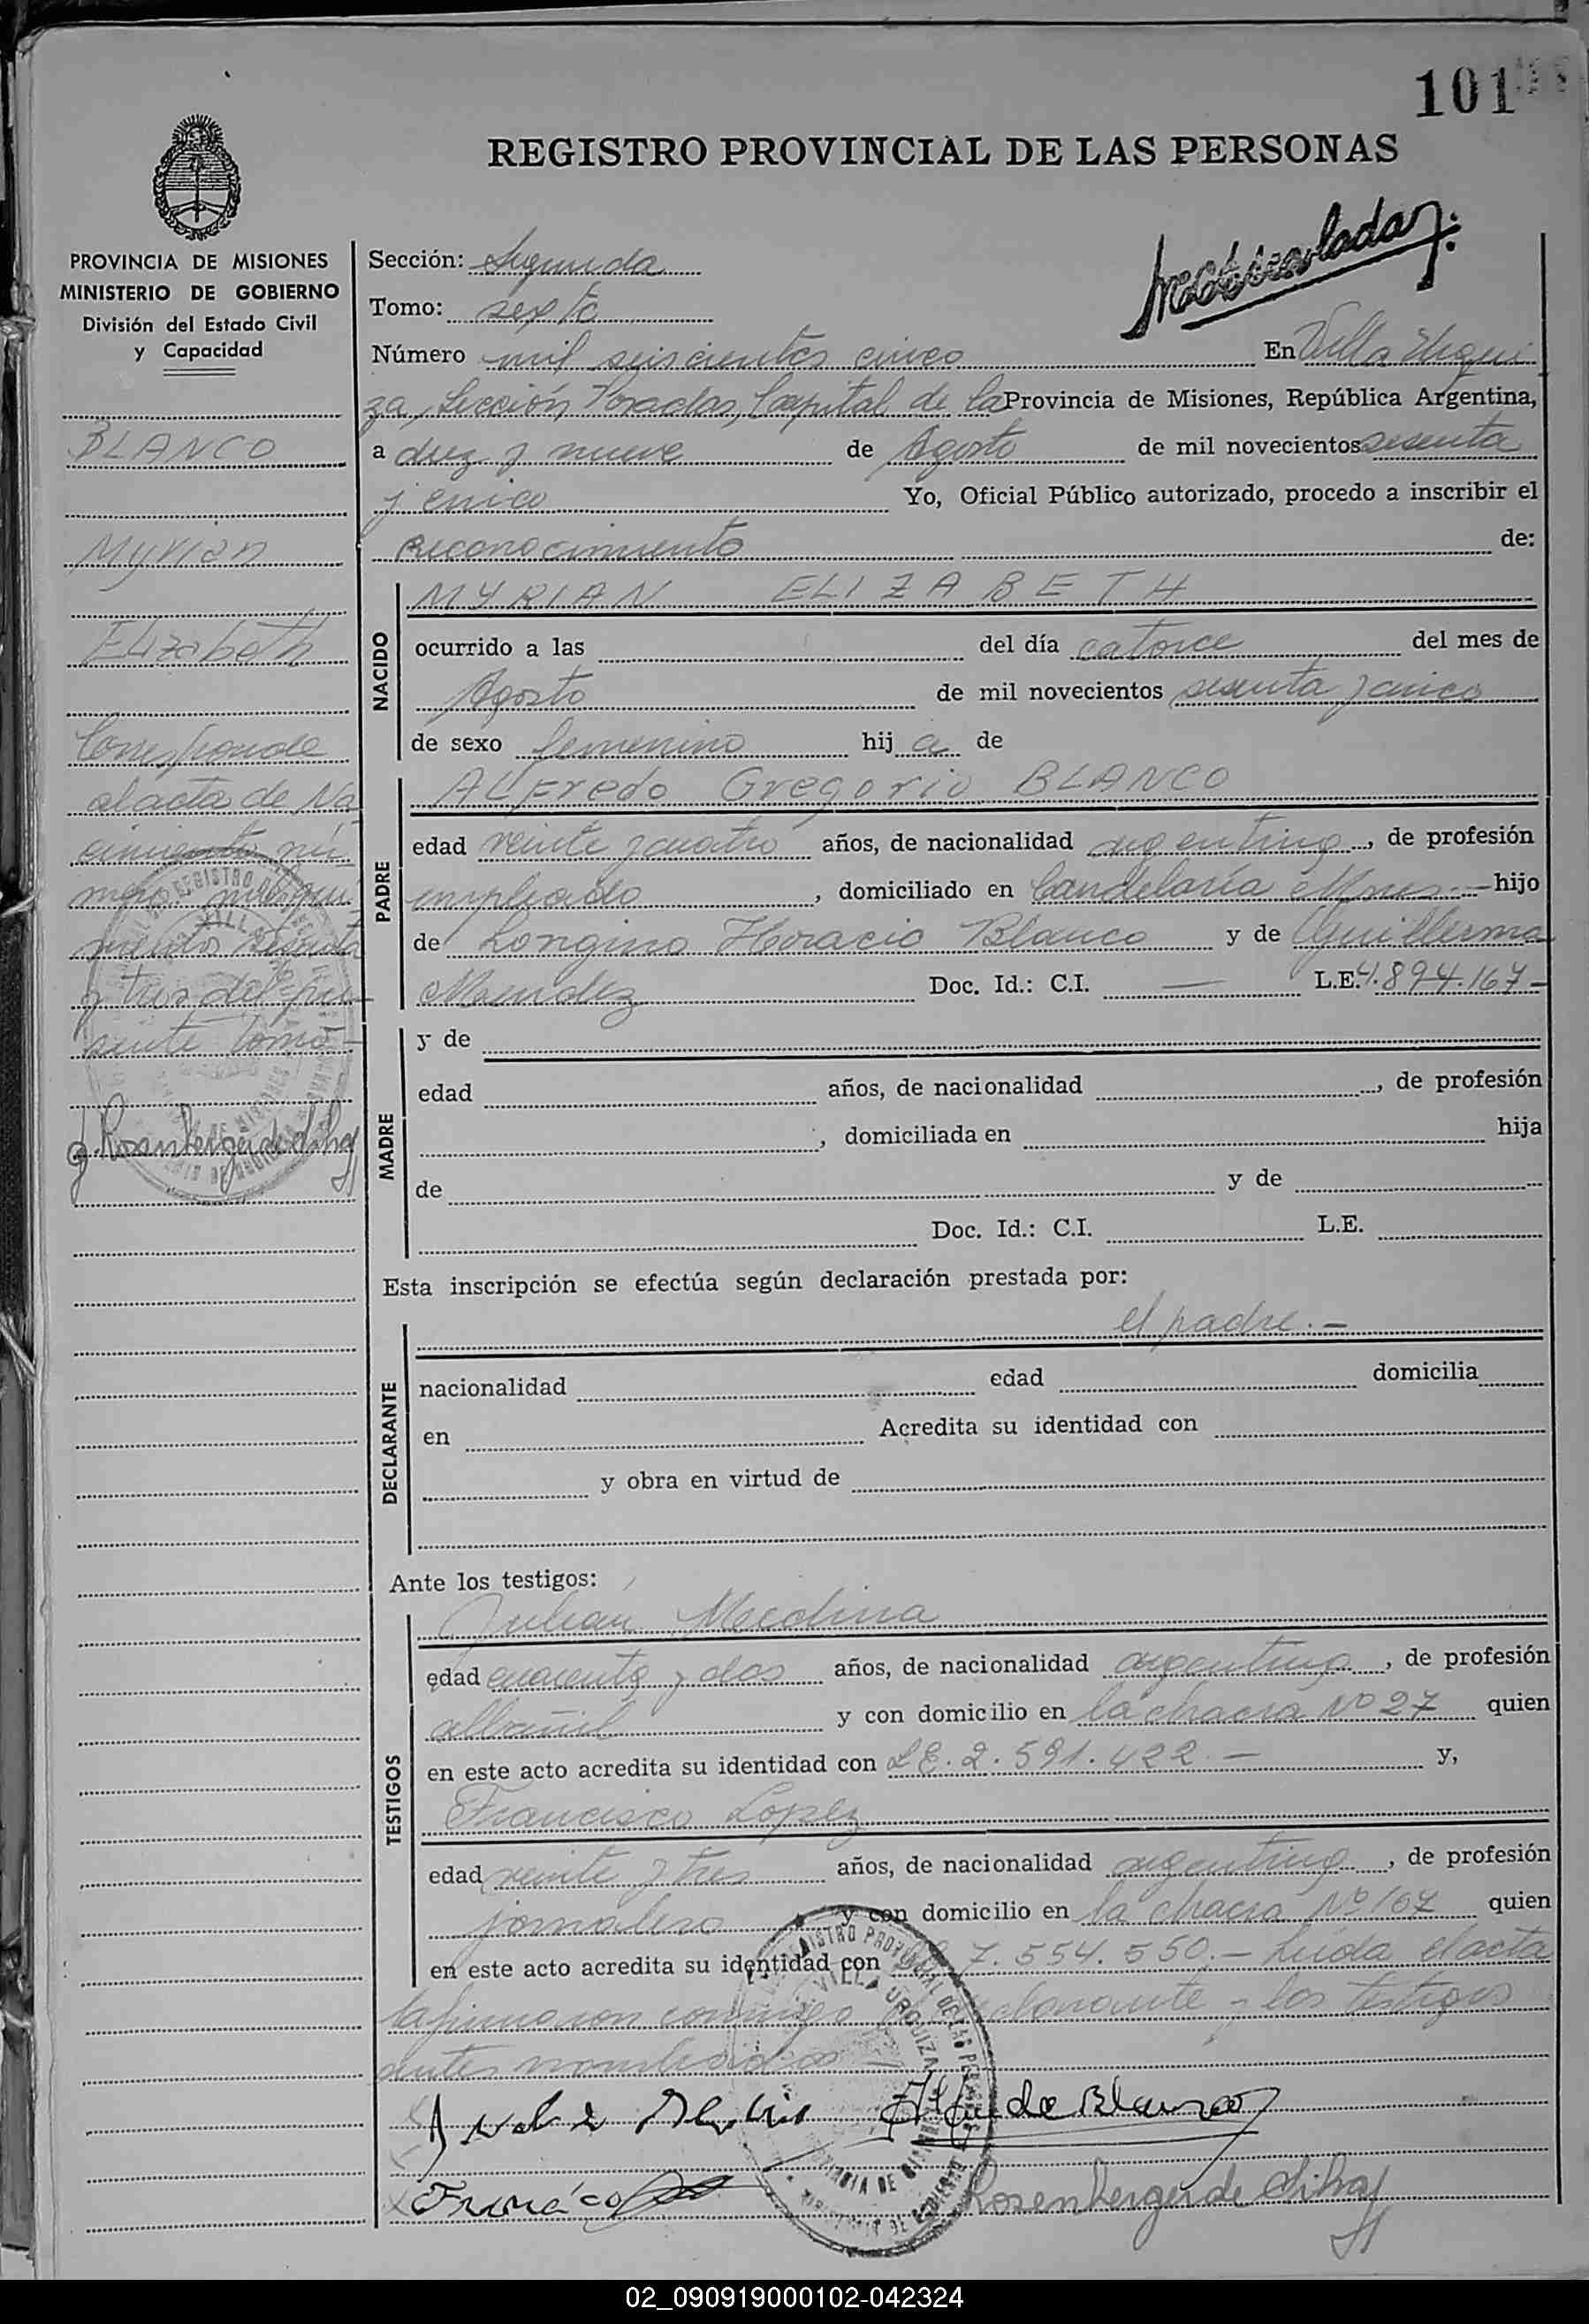 101
REGISTRO PROVINCIAL DE LAS PERSONAS
PROVINCIA DE MISIONES
MINISTERIO DE GOBIERNO
División del Estado Civil
y Capacidad
BLANCO
Myrian
Elizabeth
Corresponde
al acta de Na
cimiento nú
mero mil qui
nientos sesenta
y tres del pre
sente tomo
Sección: Segunda
Tomo: sexto
Número mil seiscientos cinco En Villa Urqui
za, Sección Posadas, Capital de la Provincia de Misiones, República Argentina,
a diez y nueve de Agosto de mil novecientos sesenta
y cinco Yo, Oficial Público autorizado, procedo a inscribir el
reconocimiento de:
NACIDO
MYRIAN ELIZABETH
ocurrido a las del día catorce del mes de
Agosto de mil novecientos sesenta y cinco
de sexo femenino hij a de
PADRE
ALFredo Gregorio BLANCO
edad veinte y cuatro años, de nacionalidad argentina, de profesión
empleado, domiciliado en Candelaria Mnes - hijo
de Longino Horacio Blanco y de Guillerma
Mendez Doc. Id.: C.I. — L.E. 4.894.167 -
MADRE
y de
edad años, de nacionalidad , de profesión
, domiciliada en hija
de y de
Doc. Id.: C.I. L.E.
Esta inscripción se efectúa según declaración prestada por:
DECLARANTE
el padre.-
nacionalidad edad domicilia
en Acredita su identidad con
y obra en virtud de
Ante los testigos:
TESTIGOS
Julian Medina
edad cuarenta y dos años, de nacionalidad argentina, de profesión
albañil y con domicilio en la chacra Nº 27 quien
en este acto acredita su identidad con LE. 2.591.422.- y,
Francisco Lopez
edad veinte y tres años, de nacionalidad argentina, de profesión
jornalero y con domicilio en la chacra Nº 167 quien
en este acto acredita su identidad con 7.554.550.- Leida el acta
la firmaron conmigo declarante y los testigos
antes nombrados
Alfredo Blanco
Rosenberger de Silva
02_090919000102-042324